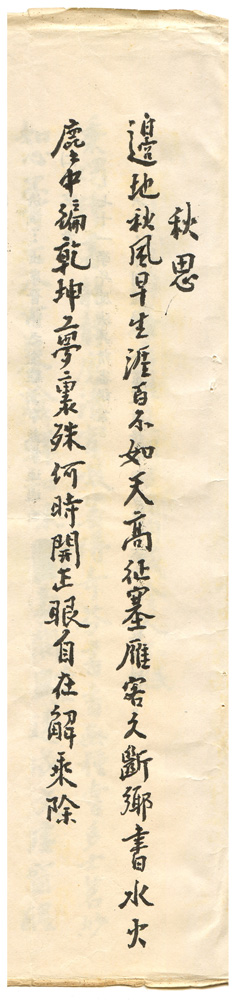 秋思
邊地秋風早生涯百不如天高征塞雁客久斷鄉書水火
塵中編乾坤夢裏殊何時開正眼自在解乘除